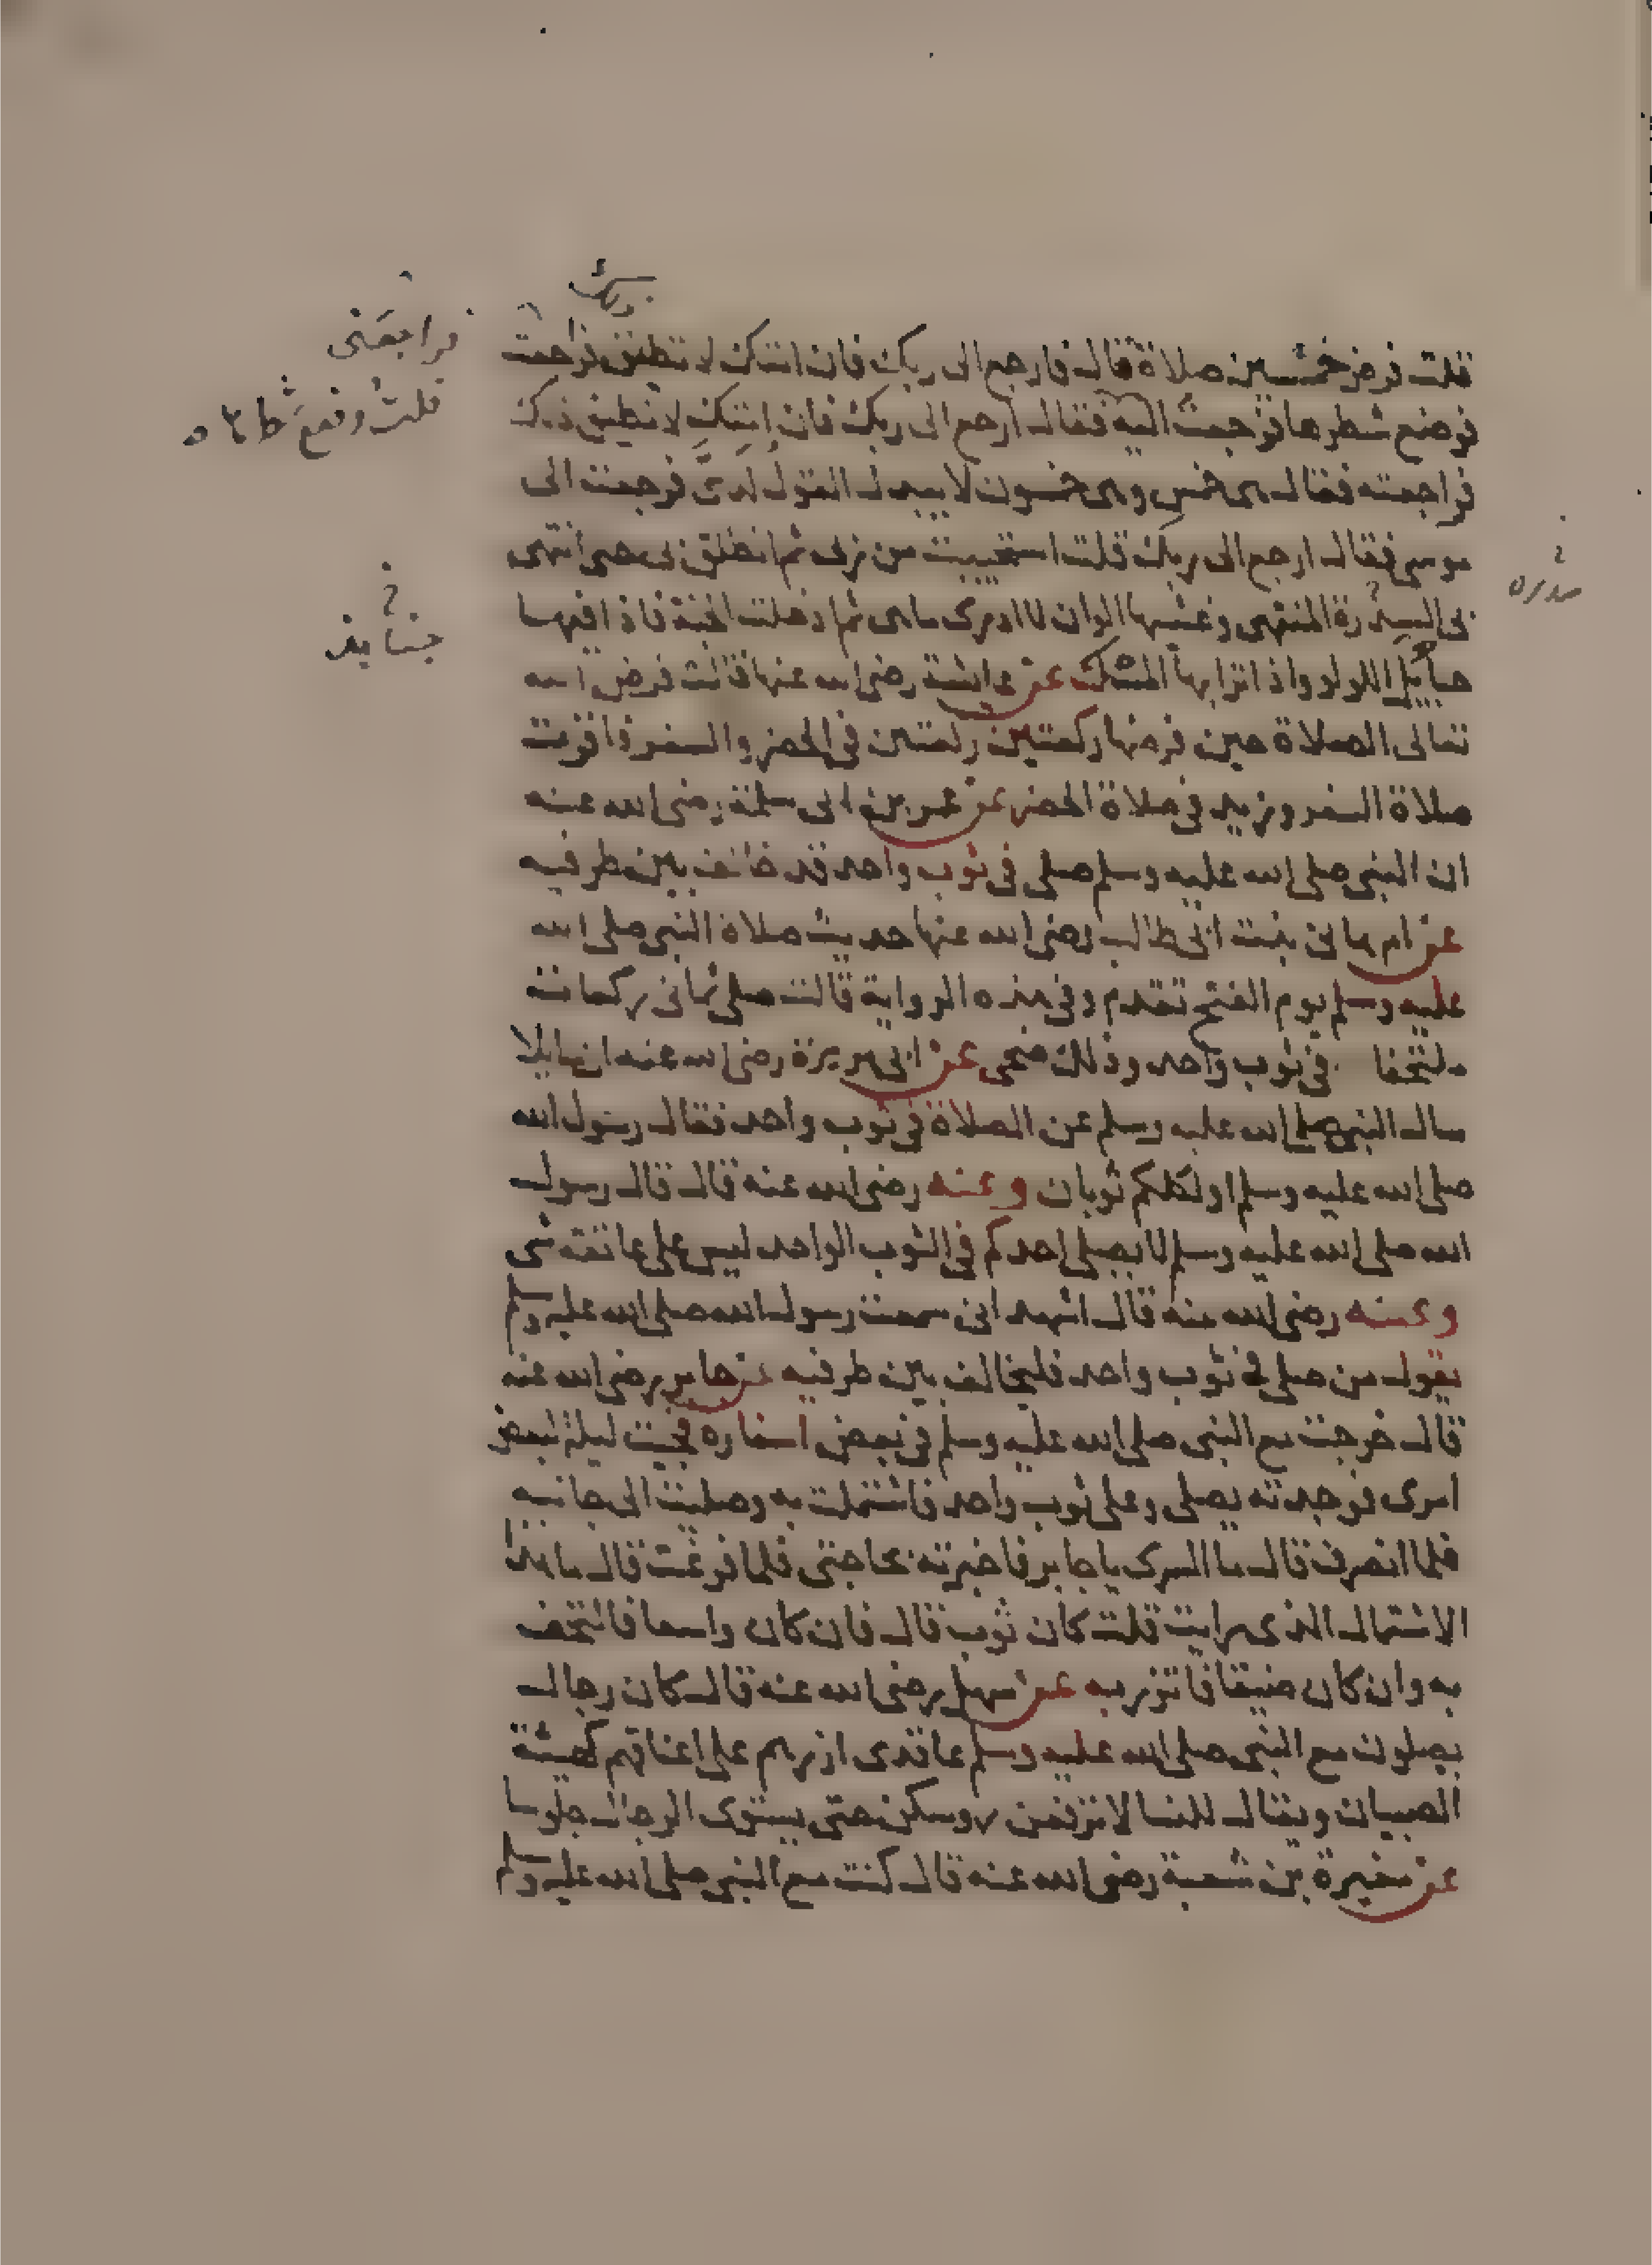 ذلك
قلت فرض خمسين صلاة قال فارجع الى ربك فان امتك لا تطيق فراجعت
فراجعنى
فوضع شطرها فرجعت اليه فقال ارجع الى ربك فان امتك لا تطيق ذلك
فراجعته فقال هى خمس وهى خمسون لا يبدل القول لدى فرجعت الى
موسى فقال ارجع الى ربك قلت استحييت من ربى ثم انطلق بى حتى انتهى
بى الى السدرة المنتهى وغشيها الوان لا ادرى ماهى ثم ادخلت الجنة فاذا فيها
جنابذ
حبايل اللولو واذا ترابها المسك عن عايشة رضى الله عنها قالت فرض الله
تعالى الصلاة حين فرضها ركعتين ركعتين فى الحضر والسفر فاقرت
صلاة السفر وزيد فى صلاة الحضر عن عمر بن ابى سلمة رضى الله عنه
ان النبى صلى الله عليه وسلم صلى فى ثوب واحد قد خالف بين طرفيه
عن ام هانى بنت ابى طالب رضى الله عنها حديث صلاة النبى صلى الله
عليه وسلم يوم الفتح تقدم وفى هذه الرواية قالت صلى ثمانى ركعات
ملتحفا فى ثوب واحد وذلك ضحى عن ابى هريرة رضى الله عنه ان سايلا
سال النبى صلى الله عليه وسلم عن الصلاة فى ثوب واحد فقال رسول الله
صلى الله عليه وسلم اولكلكم ثوبان وعنه رضى الله عنه قال قال رسول
الله صلى الله عليه وسلم لا يصلى احدكم فى الثوب الواحد ليس على عاتقه شى
وعنه رضى الله عنه قال اشهد انى سمعت رسول الله صلى الله عليه وسلم
يقول من صلى فى ثوب واحد فليخالف بين طرفيه عن جابر رضى الله عنه
قال خرجت مع النبى صلى الله عليه وسلم فى بعض اسفاره فجيت ليلة لبعض
امرى فوجدته يصلى وعلى ثوب واحد فاشتملت به وصليت الى جانبه
فلما انصرف قال ما السرى يا جابر فاخبرته بحاجتى فلما فرغت قال ما هذا
الاشتمال الذى رايت قلت كان ثوب قال فان كان واسعا فالتحف
به وان كان ضيقا فاتزر به عن سهل رضى الله عنه قال كان رجال
يصلون مع النبى صلى الله عليه وسلم عاقدى ازرهم على اعناقهم كهيئة
الصبيان ويقال للنسا لا ترفعن روسكن حتى يستوى الرجال جلوسا
عن مغيرة بن شعبة رضى الله عنه قال كنت مع النبى صلى الله عليه وسلم